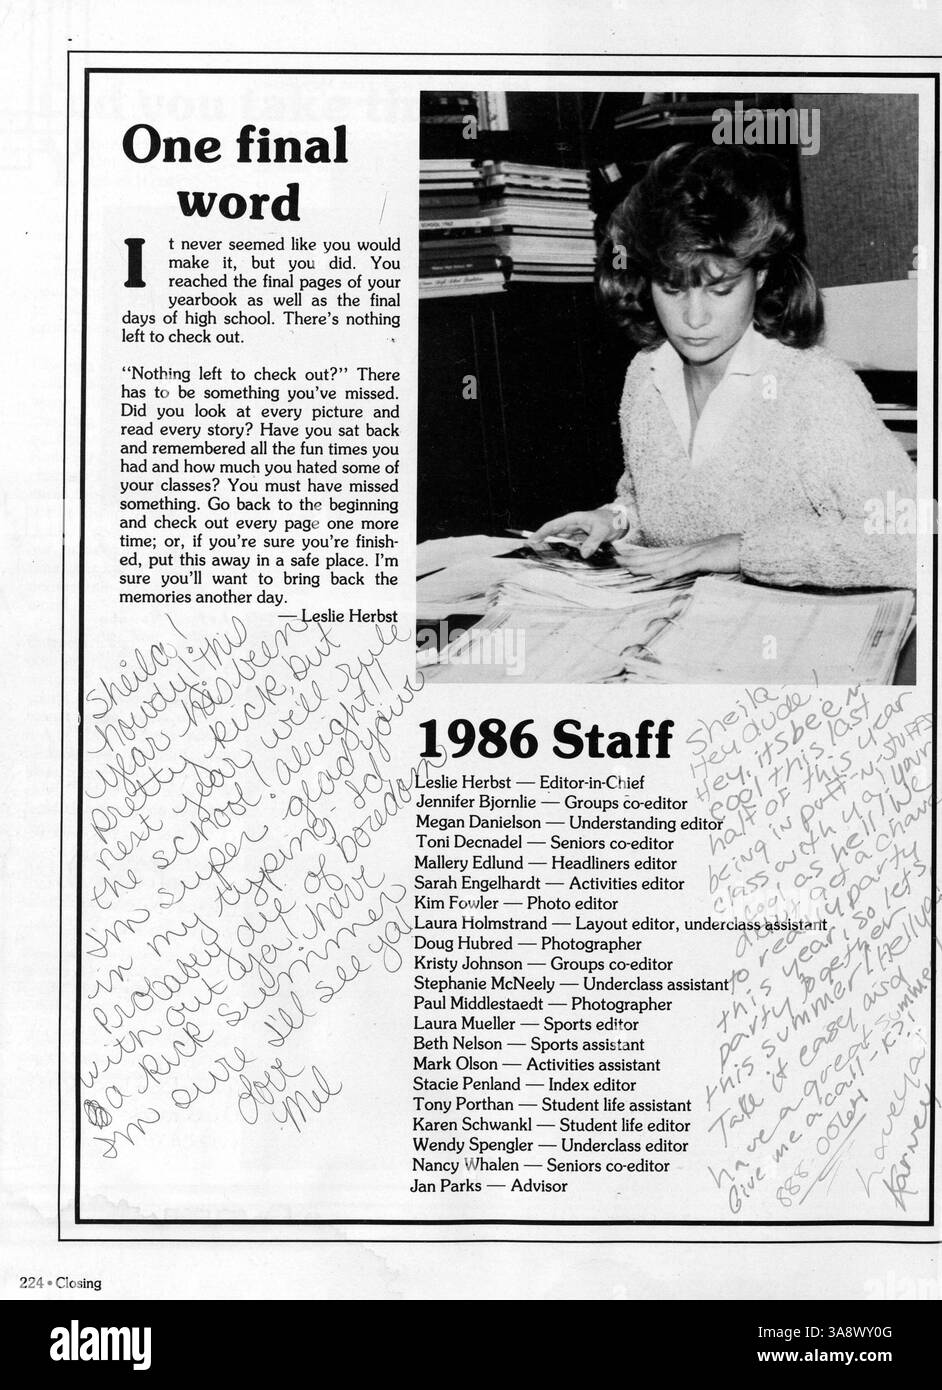 One final
word
It never seemed like you would
make it, but you did. You
reached the final pages of your
yearbook as well as the final
days of high school. There's nothing
left to check out.
"Nothing left to check out?" There
has to be something you've missed.
Did you look at every picture and
read every story? Have you sat back
and remembered all the fun times you
had and how much you hated some of
your classes? You must have missed
something. Go back to the beginning
and check out every page one more
time; or, if you're sure you're finish-
ed, put this away in a safe place. I'm
sure you'll want to bring back the
memories another day.
— Leslie Herbst
Sheila!
howdy! this
year has been
pretty kick but
next year we'll rule
the school! alright!
I'm super glad you're
in my typing. I'd
probably die of boredom
without ya! have
a kick summer
I'm sure I'll see ya
love
Mel
1986 Staff
Leslie Herbst — Editor-in-Chief
Jennifer Bjornlie — Groups co-editor
Megan Danielson — Understanding editor
Toni Decnadel — Seniors co-editor
Mallery Edlund — Headliners editor
Sarah Engelhardt — Activities editor
Kim Fowler — Photo editor
Laura Holmstrand — Layout editor, underclass assistant
Doug Hubred — Photographer
Kristy Johnson — Groups co-editor
Stephanie McNeely — Underclass assistant
Paul Middlestaedt — Photographer
Laura Mueller — Sports editor
Beth Nelson — Sports assistant
Mark Olson — Activities assistant
Stacie Penland — Index editor
Tony Porthan — Student life assistant
Karen Schwankl — Student life editor
Wendy Spengler — Underclass editor
Nancy Whalen — Seniors co-editor
Jan Parks — Advisor
Sheila
Hey dude!
Hey, it's been
cool this last
half of this year
being in puff-n-stuffs
class with ya, your
cool as hell! We
didn't get a chance
to really party
this year, so lets
party together
this summer
Take it easy and
have a great summer
Give me a call - K.S!
888-0064
224 • Closing
alamy
Image ID: 3A8WY0G
www.alamy.com